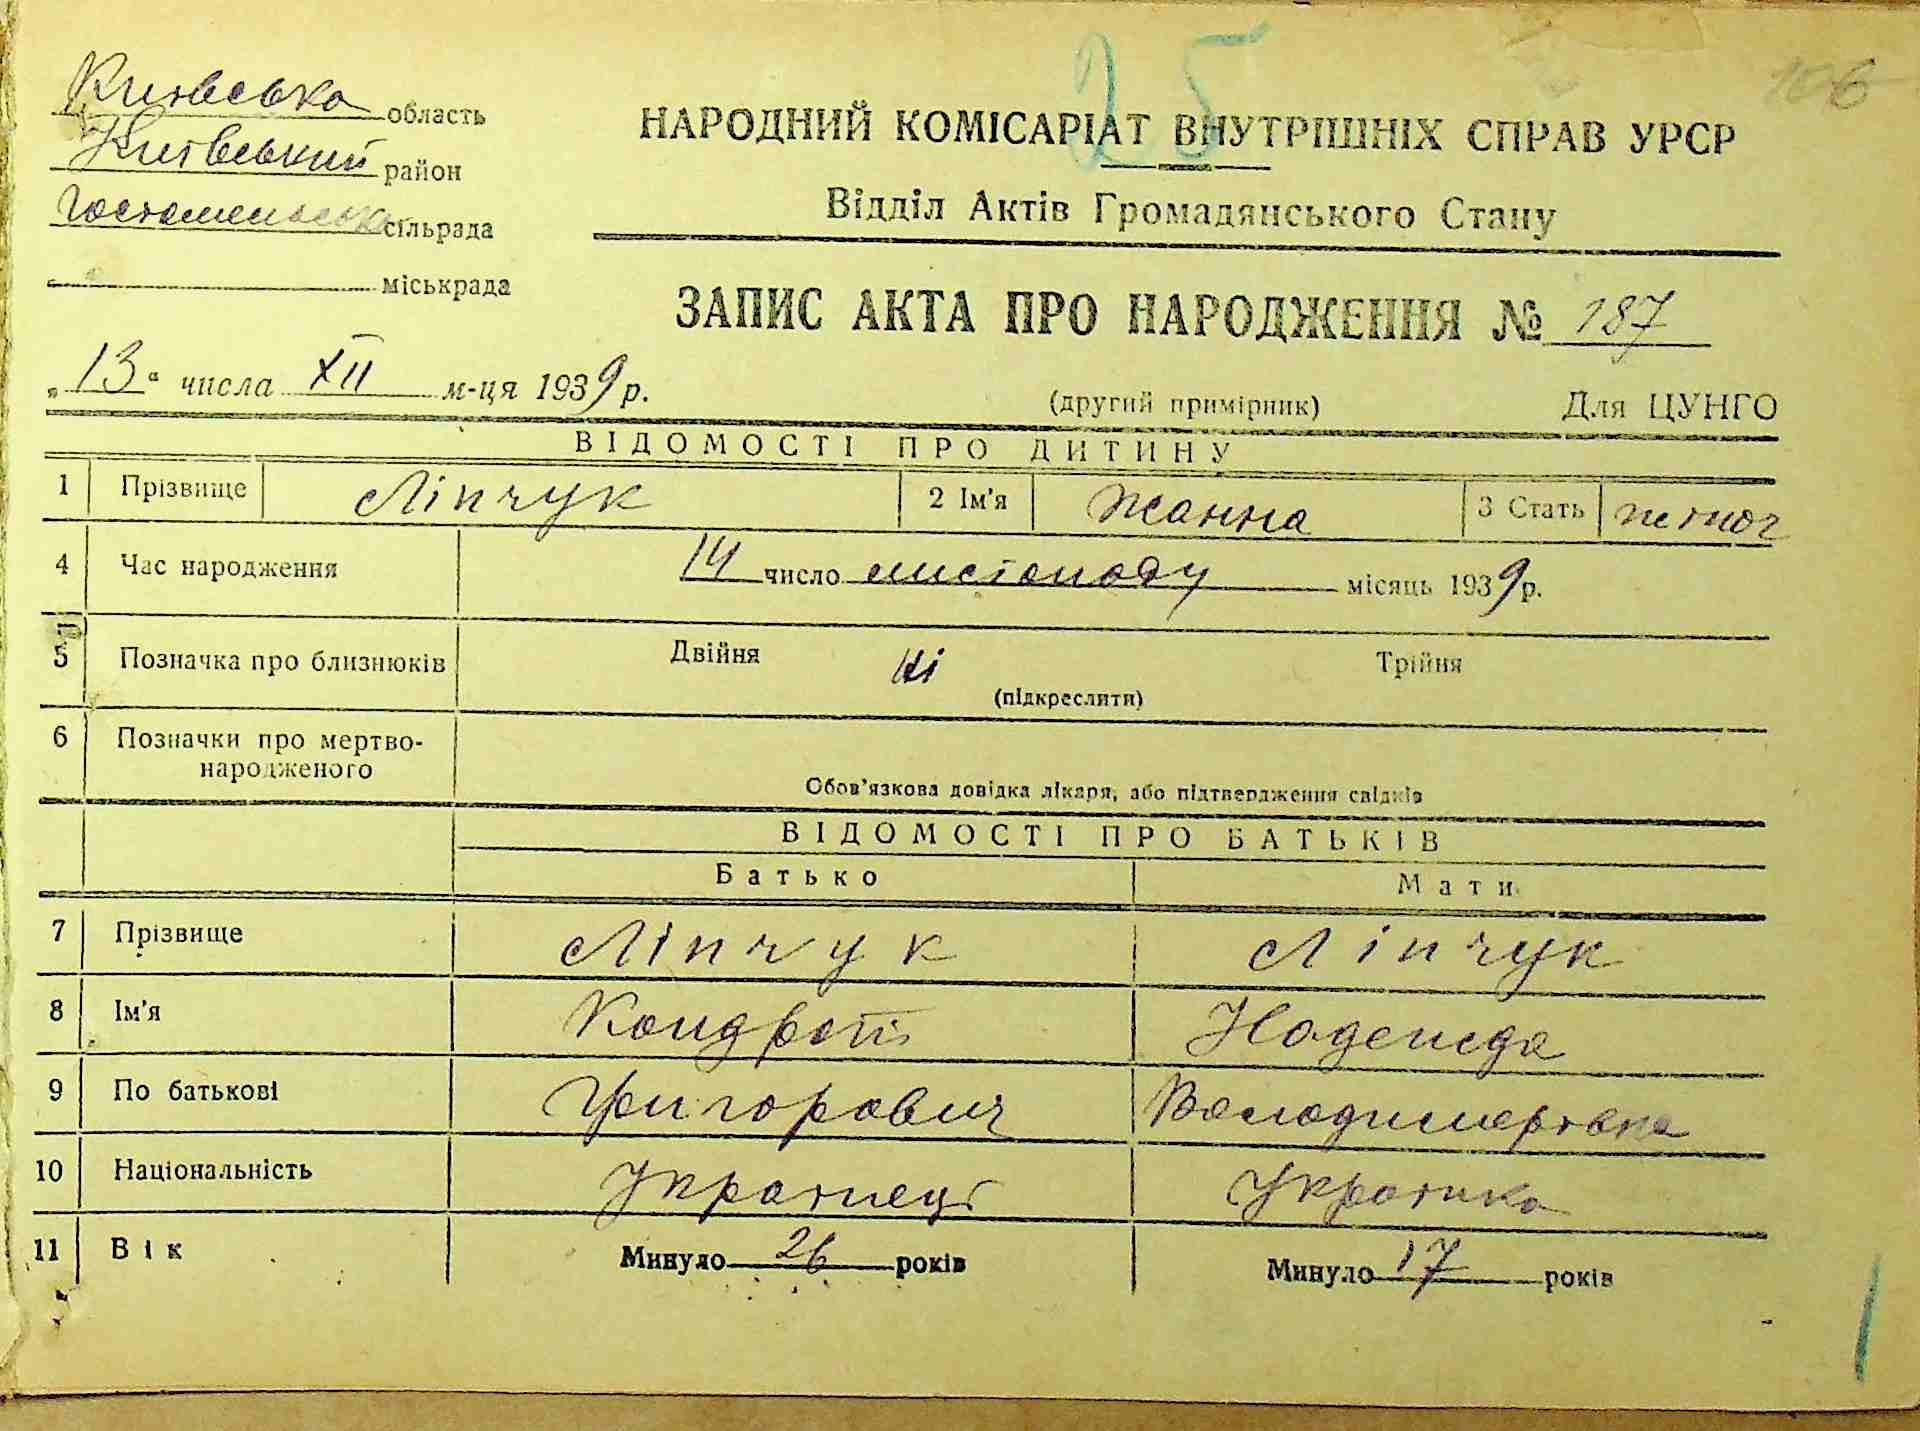 25
106
Київська область
Київський район
Гостомельська сільрада
міськрада
НАРОДНИЙ КОМІСАРІАТ ВНУТРІШНІХ СПРАВ УРСР
Відділ Актів Громадянського Стану
ЗАПИС АКТА ПРО НАРОДЖЕННЯ № 187
„13“ числа XII м-ця 1939 р.
(другий примірник) Для ЦУНГО
ВІДОМОСТІ ПРО ДИТИНУ
1 Прізвище Ліпчук 2 Ім'я Жанна 3 Стать жіноч
4 Час народження 14 число листопаду місяць 1939 р.
5 Позначка про близнюків Двійня ні Трійня
(підкреслити)
6 Позначки про мертво-
народженого
Обов'язкова довідка лікаря, або підтвердження свідків
ВІДОМОСТІ ПРО БАТЬКІВ
Батько Мати
7 Прізвище Ліпчук Ліпчук
8 Ім'я Кондрат Надежда
9 По батькові Григорович Володимировна
10 Національність Українець Українка
11 Вік Минуло 26 років Минуло 17 років